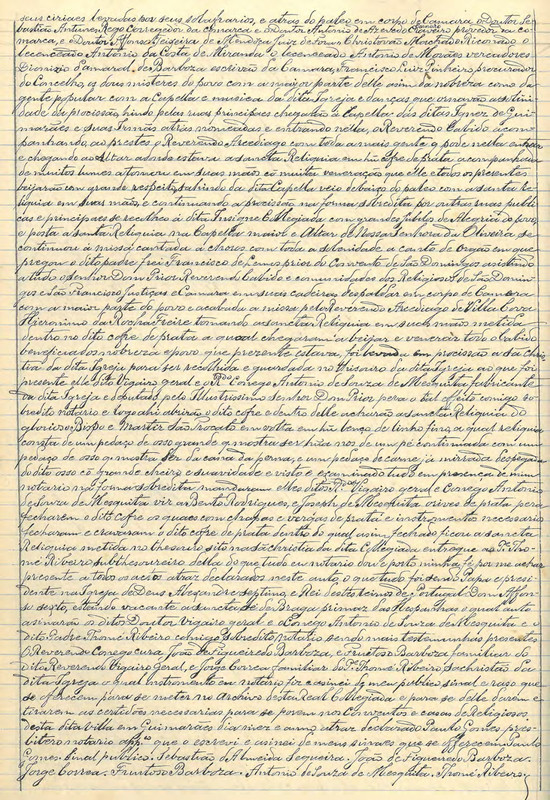 seus ciriaes levados por seus sobafrarios, e atras do paleo em corpo de Camara, o Doutor Se
bastião Antunes Rego Corregedor da comarca e o Doutor Antonio de Azevedo provedor da co
marca, e o Doutor Affonso Teixeira de Mendoza Juiz de fora, Christovão Machado o
Licenceado Antonio da Costa de Miranda o Licenceado Antonio de Moraes vereadores
Dionizio do Amaral de Barboza escrivão da Camara, Francisco Luis Pinheiro procurador
do Concelho, os dous misteres do povo com a maior parte delle asim da nobreza como da
gente popular com a Capella e musica da dita Igreja e danças que ornavão a solini
dade da procissão, hindo pelas ruas principaes chegarão a Capella das ditas Ignez de Gui
marães e suas Irmãs atras nomeadas e entrando nella, o Reverendo Cabido acom
panhando, ao prestes o Reverendo Arcediago com toda a mais gente q pode nella entrar
e chegando ao Altar adonde estava a sancta Reliquia em hũ cofre de prata acompanhada
de muitos lumes a tomou em suas mãos cõ muita veneração que elle e todos os presentes
beijarão em grande respeito, sahindo da dita Capella veio debaixo do paleo com a santa Re
liquia em suas mãos e continuando a procissão na forma sobredita por outras ruas publi
cas e principaes se recolheo á dita Insigne Collegiada com grande jubilo de Alegria do povo,
e posta a santa Reliquia na Capella maior e Altar de Nossa Senhora da Oliveira se
continuou a missa cantada a choros com toda a solenidade a canto de orgão em que
pregou o dito padre frei Francisco de Lemos prior do Convento de São Domingos assistindo
a tudo o senhor Dom Prior Reverendo Cabido e comunidades dos Religiosos de São Domin
gos e São Francisco Justiças e Camara em suas cadeiras despaldar em corpo de Camara
com a maior parte do povo e acabada a missa pelo Reverendo Arcediago de Villa Cova
Hieronimo da Rocha Freire tomando a sancta Reliquia em suas mãos metida
dentro no dito cofre de prata a qual chegaram a beijar e venerar todo o Cabido
beneficiados nobreza e povo que prezente estava, foi levada em procissão a Sachris
tia da dita Igreja para ser recolhida e guardada no thisouro da dita Igreja ao que foi
presente elle dito Vigairo geral e o R. Conego Antonio de Souza de Mesquita fabricante
da dita Igreja e deputado pelo Illustrissimo senhor Dom Prior pera o tal effeito comigo so
bredito notario e logo ahi abrirão o dito cofre e dentro delle acharão a sancta Reliquia do
glorioso Bispo e Martir São Torcato envolta em hũ lenço de linho fino, a qual reliquia
consta de um pedaço de osso grande q mostra ser hũa nos de um pe continuada com um
pedaço de osso q mostra ser da cana da perna, e um pedaço de carne ja mirrada despegada
do dito osso cõ grande cheiro e suavidade e visto e examinado tudo em presença de mim
notario na forma sobredita mandaram elles ditos R. Vigairo geral e Conego Antonio
de Souza de Mesquita vir a Bento Rodrigues, e Joseph de Mesquita orives de prata, pera
fecharem o dito cofre os quaes com chapas e vergas de prata e instromentos necessarios
fecharam e cravaram o dito cofre de prata dentro do qual asim fechado ficou a sancta
Reliquia metida no thesouro sito na sachristia da dita Collegiada entregue ao P. Tho
mé Ribeiro subthesoureiro della do que tudo eu notario dou e porto minha fé por me achar
presente a todos os actos atraz declarados neste auto, o que tudo foi sendo Papa e presi
dente na Igreja de Deus Alexandre septimo, e Rei destes reinos de Portugal Dom Affon
so sexto, estando vacante a sancta sé de Braga primaz das Hespanhas o qual auto
asinarão os ditos Doutor Vigairo geral e o Conego Antonio de Souza de Mesquita e o
dito Padre Thomé Ribeiro comigo sobredito notario sendo mais testemunhas presentes
o Reverendo Conego cura João de Figueiredo Barboza, e Frutuoso Barboza familiar do
dito Reverendo Vigairo Geral, e Jorge Correa familiar do P. Thomé Ribeiro Sachristão da
dita Igreja o qual Instromento eu notario fiz e asinei de meu publico sinal e raso que
se offerecem para se meter no Archivo desta Real Collegiada e para se delle darem e
tirarem as certidões necessarias para se porem nos Conventos e casas de Religiosos
desta dita villa em Guimarães dia mez e anno atraz declarado Paulo Gomes pres
bitero notario app.º que o escrevi e asinei de meus sinaes que se offerecem Paulo
Gomes Sinal publico. Sebastião de Almeida Sequeira. João de Figueiredo Barboza.
Jorge Correa. Frutuoso Barboza. Antonio de Souza de Mesquita. Thomé Ribeiro.